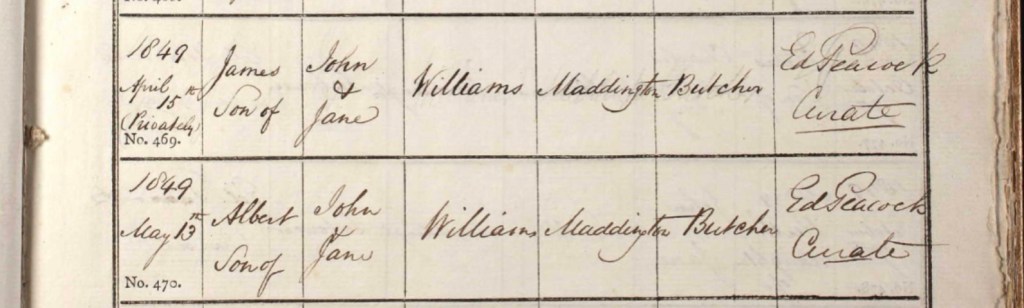 1849
April
15th
(Privately)
No. 469.
James
Son of
John
&
Jane
Williams
Maddington
Butcher
Ed Peacock
Curate
1849
May 13th
No. 470.
Albert
Son of
John
&
Jane
Williams
Maddington
Butcher
Ed Peacock
Curate